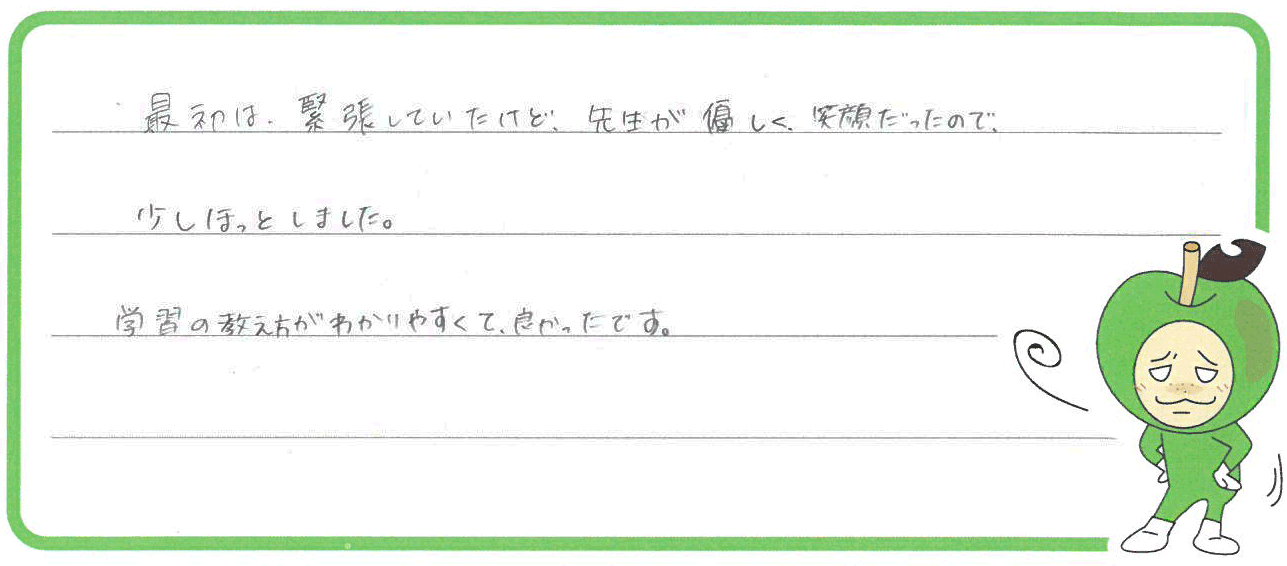 最初は、緊張していたけど、先生が優しく、笑顔だったので、
少しほっとしました。
学習の教え方がわかりやすくて、良かったです。